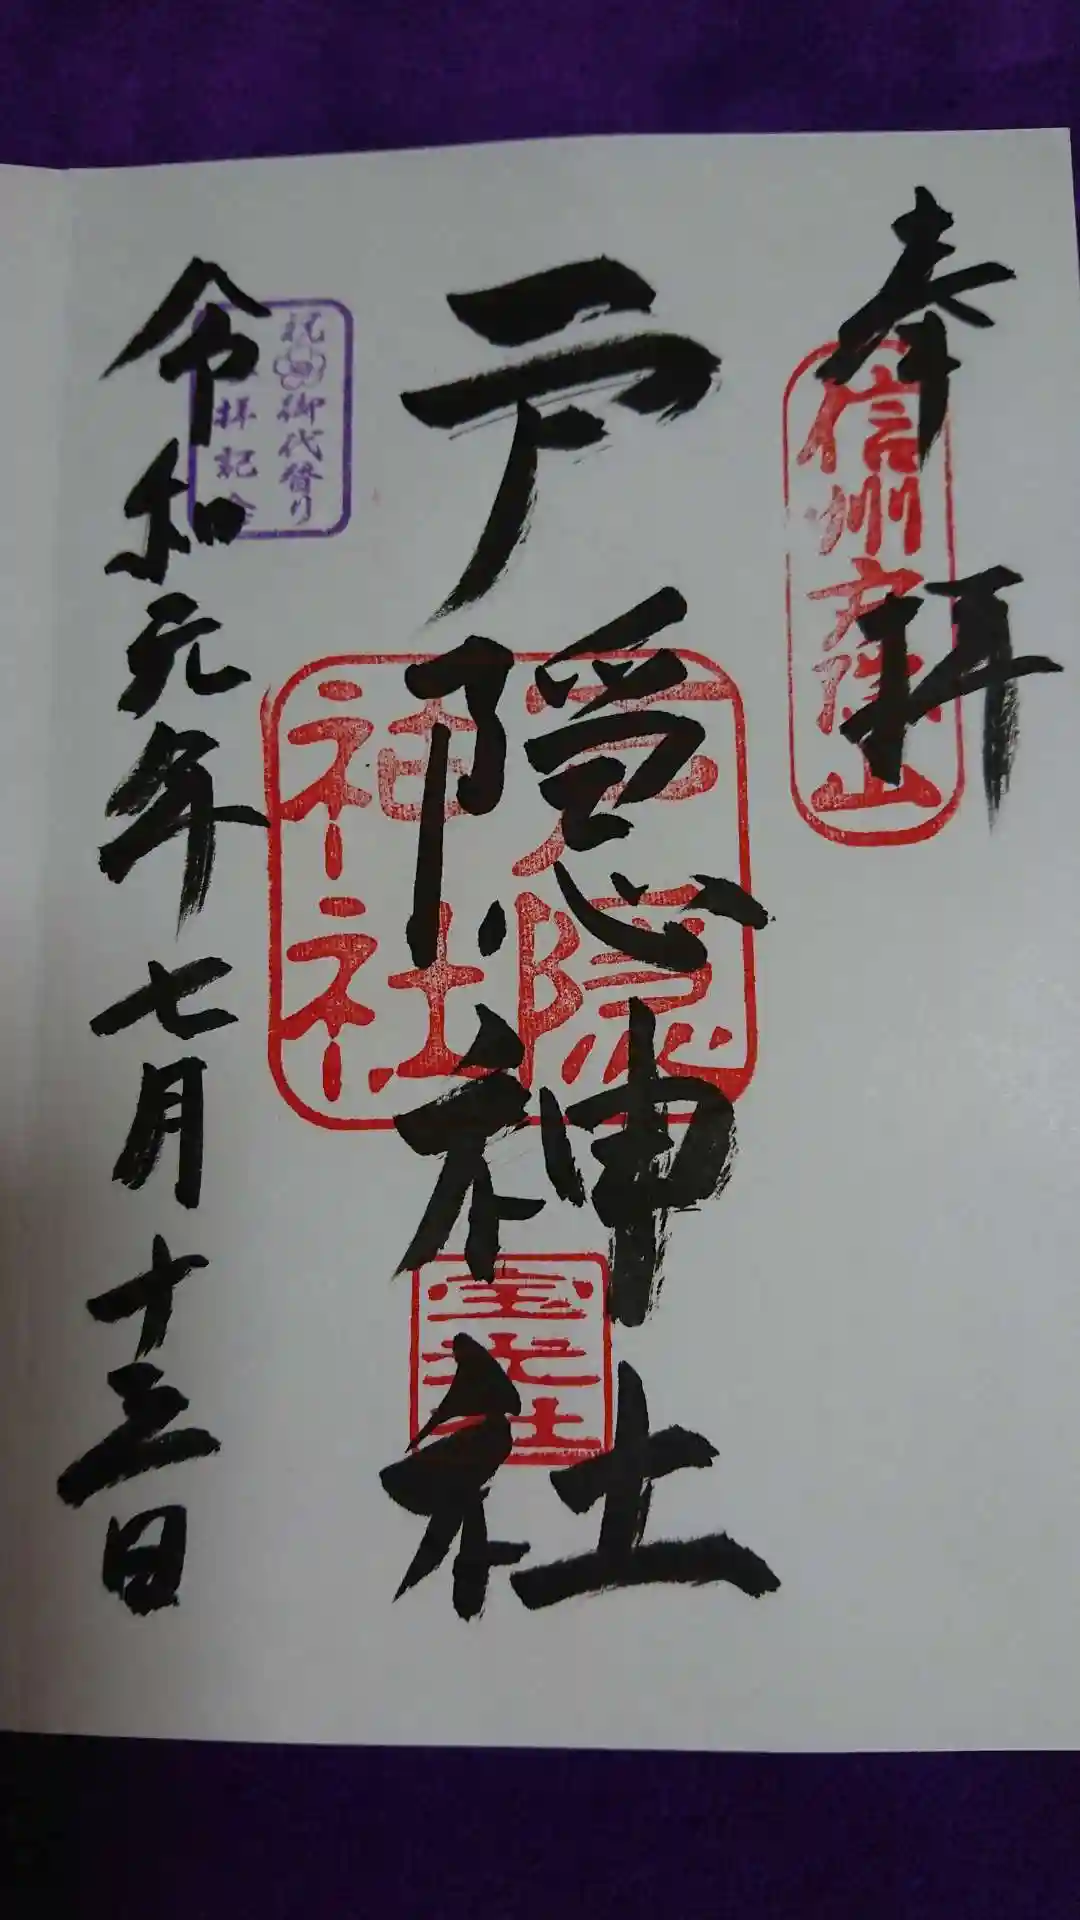 奉拝
信州戸隠山
戸隠神社
戸隠
神社
宝光社
祝 御代替り
拝記念
令和元年七月十三日